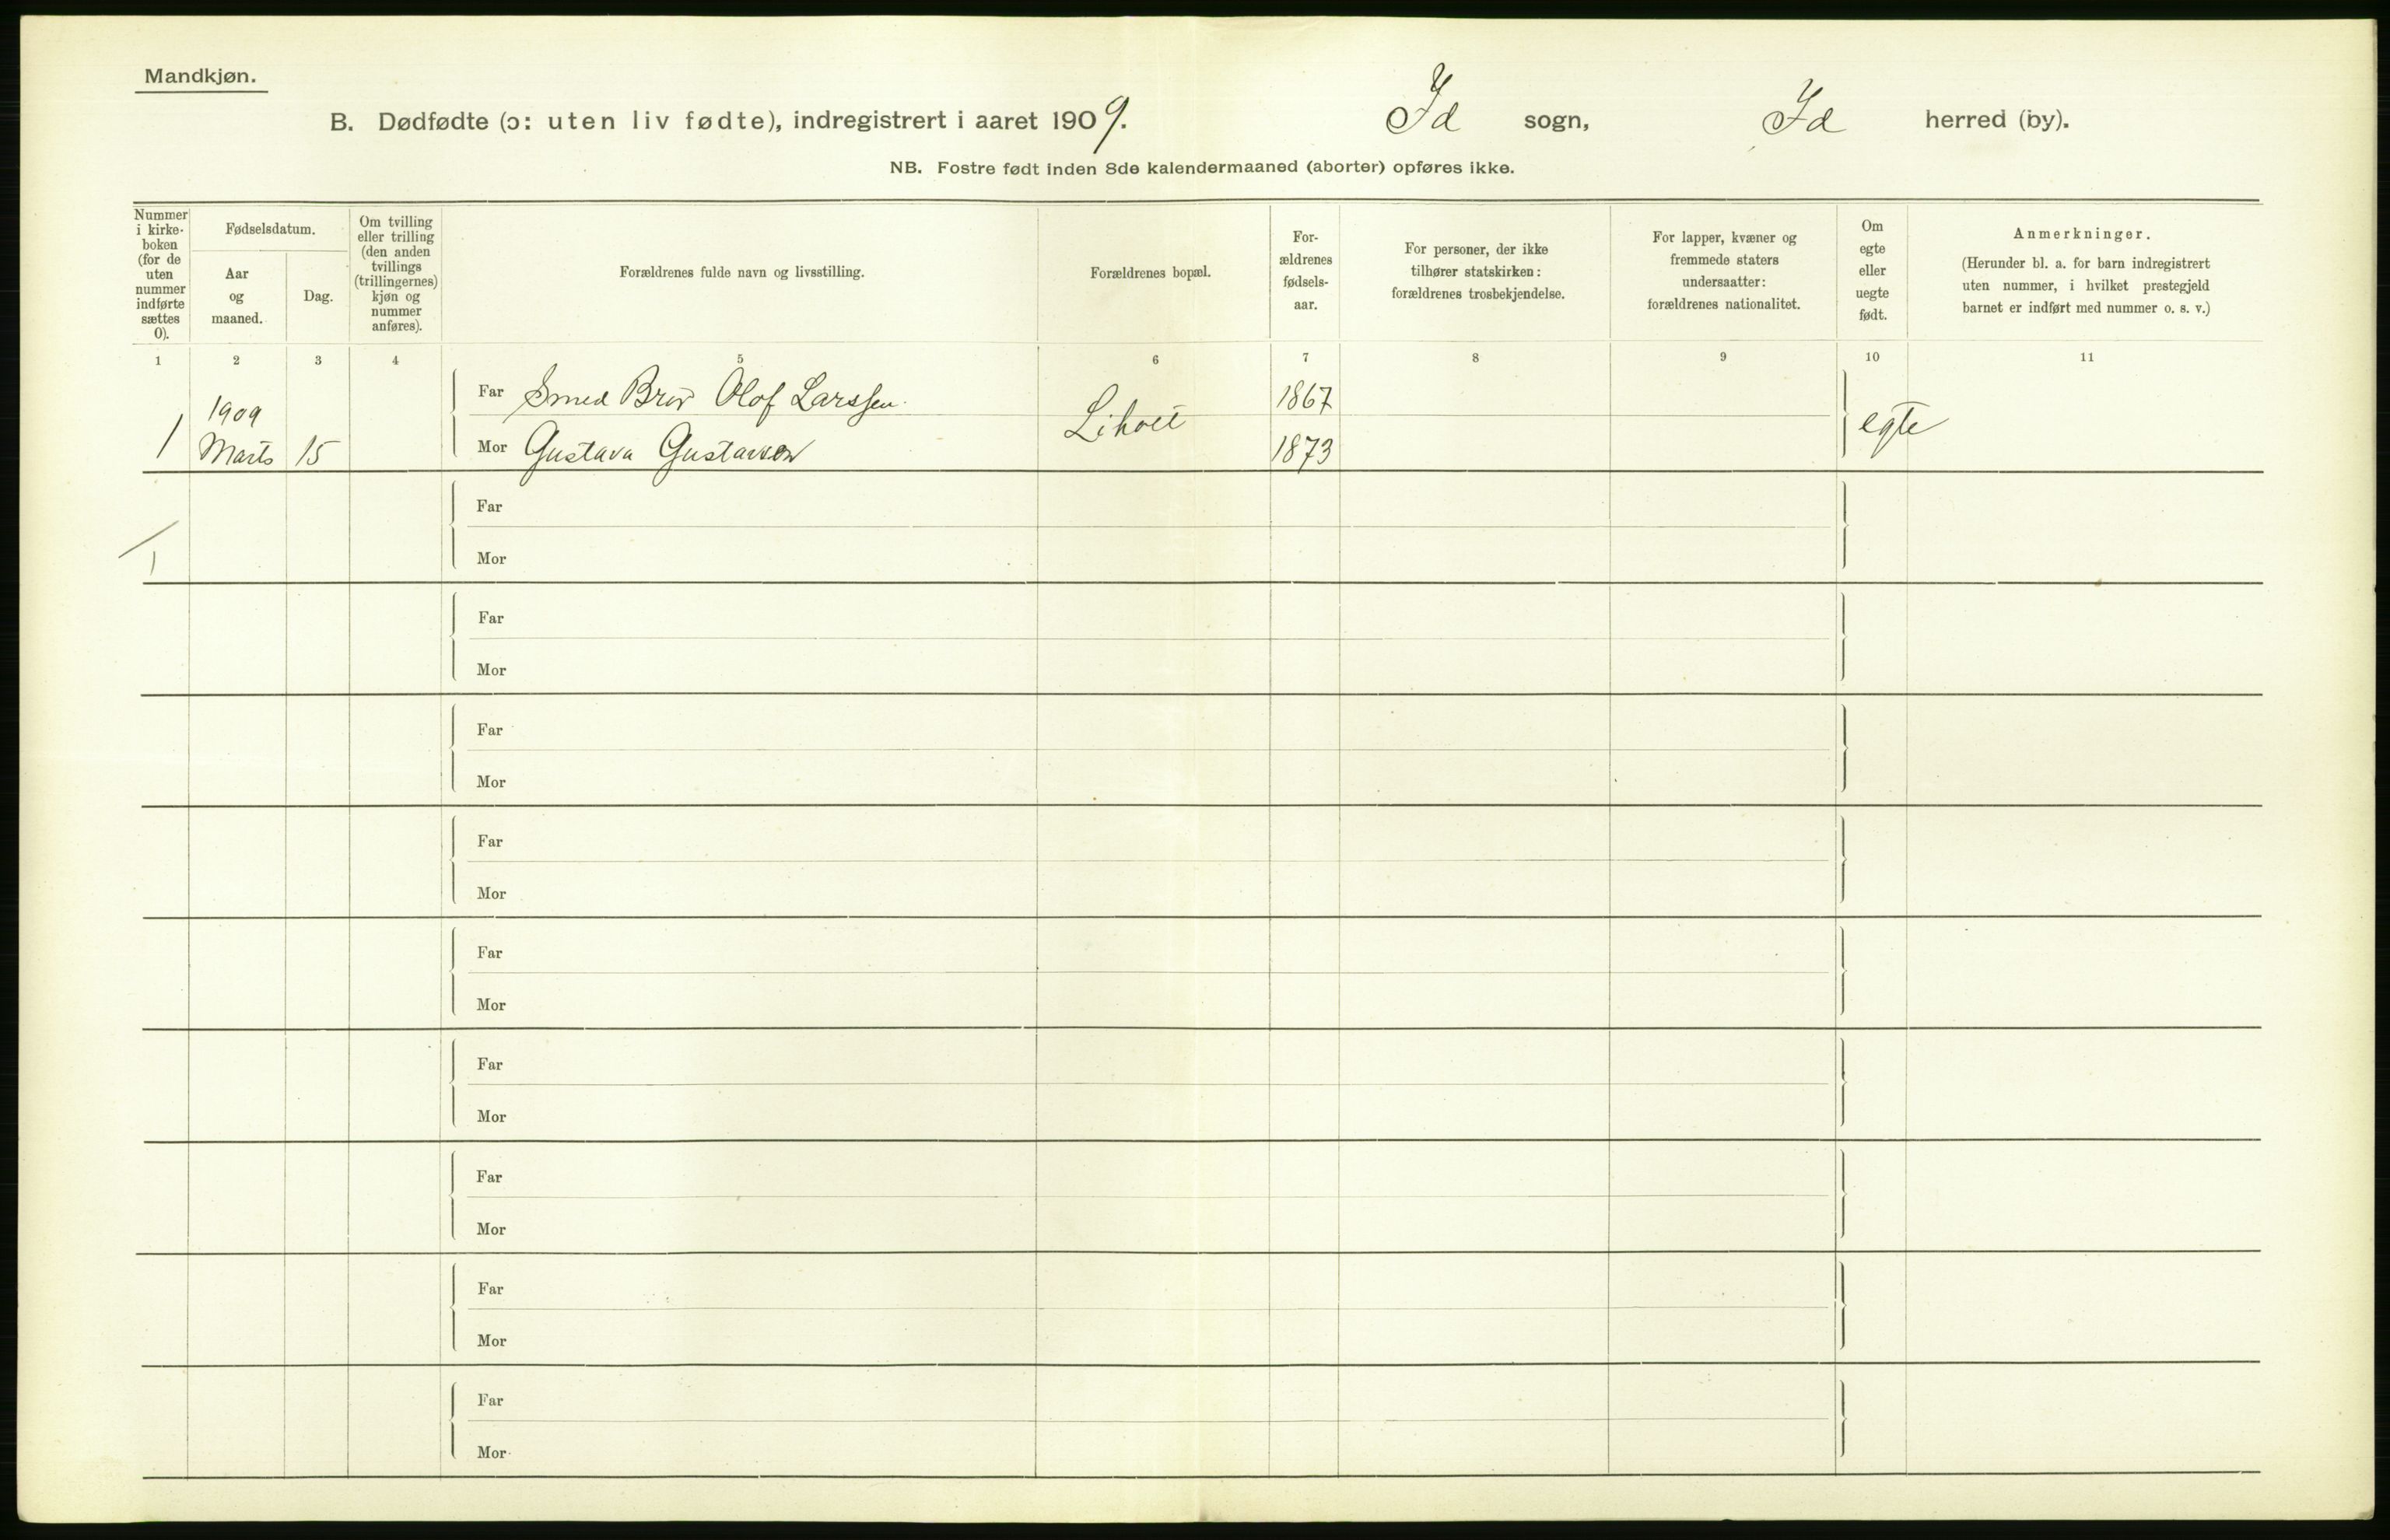 Mandkjøn.
B. Dødfødte (ɔ: uten liv fødte), indregistrert i aaret 1909. Id sogn, Id herred (by).
NB. Fostre født inden 8de kalendermaaned (aborter) opføres ikke.
Nummer
i kirke-
boken
(for de
uten
nummer
indførte
sættes
0).
Fødselsdatum.
Aar
og
maaned.
Dag.
Om tvilling
eller trilling
(den anden
tvillings
(trillingernes)
kjøn og
nummer
anføres).
Forældrenes fulde navn og livsstilling.
Forældrenes bopæl.
For-
ældrenes
fødsels-
aar.
For personer, der ikke
tilhører statskirken:
forældrenes trosbekjendelse.
For lapper, kvæner og
fremmede staters
undersaatter:
forældrenes nationalitet.
Om
egte
eller
uegte
født.
Anmerkninger.
(Herunder bl. a. for barn indregistrert
uten nummer, i hvilket prestegjeld
barnet er indført med nummer o. s. v.)
1 2 3 4 5 6 7 8 9 10 11
Far Smed Bror Olof Larssen. 1867
1 1909 Marts 15 Liholt egte
Mor Gustava Gustavson 1873
Far
Mor
1
Far
Mor
Far
Mor
Far
Mor
Far
Mor
Far
Mor
Far
Mor
Far
Mor
Far
Mor